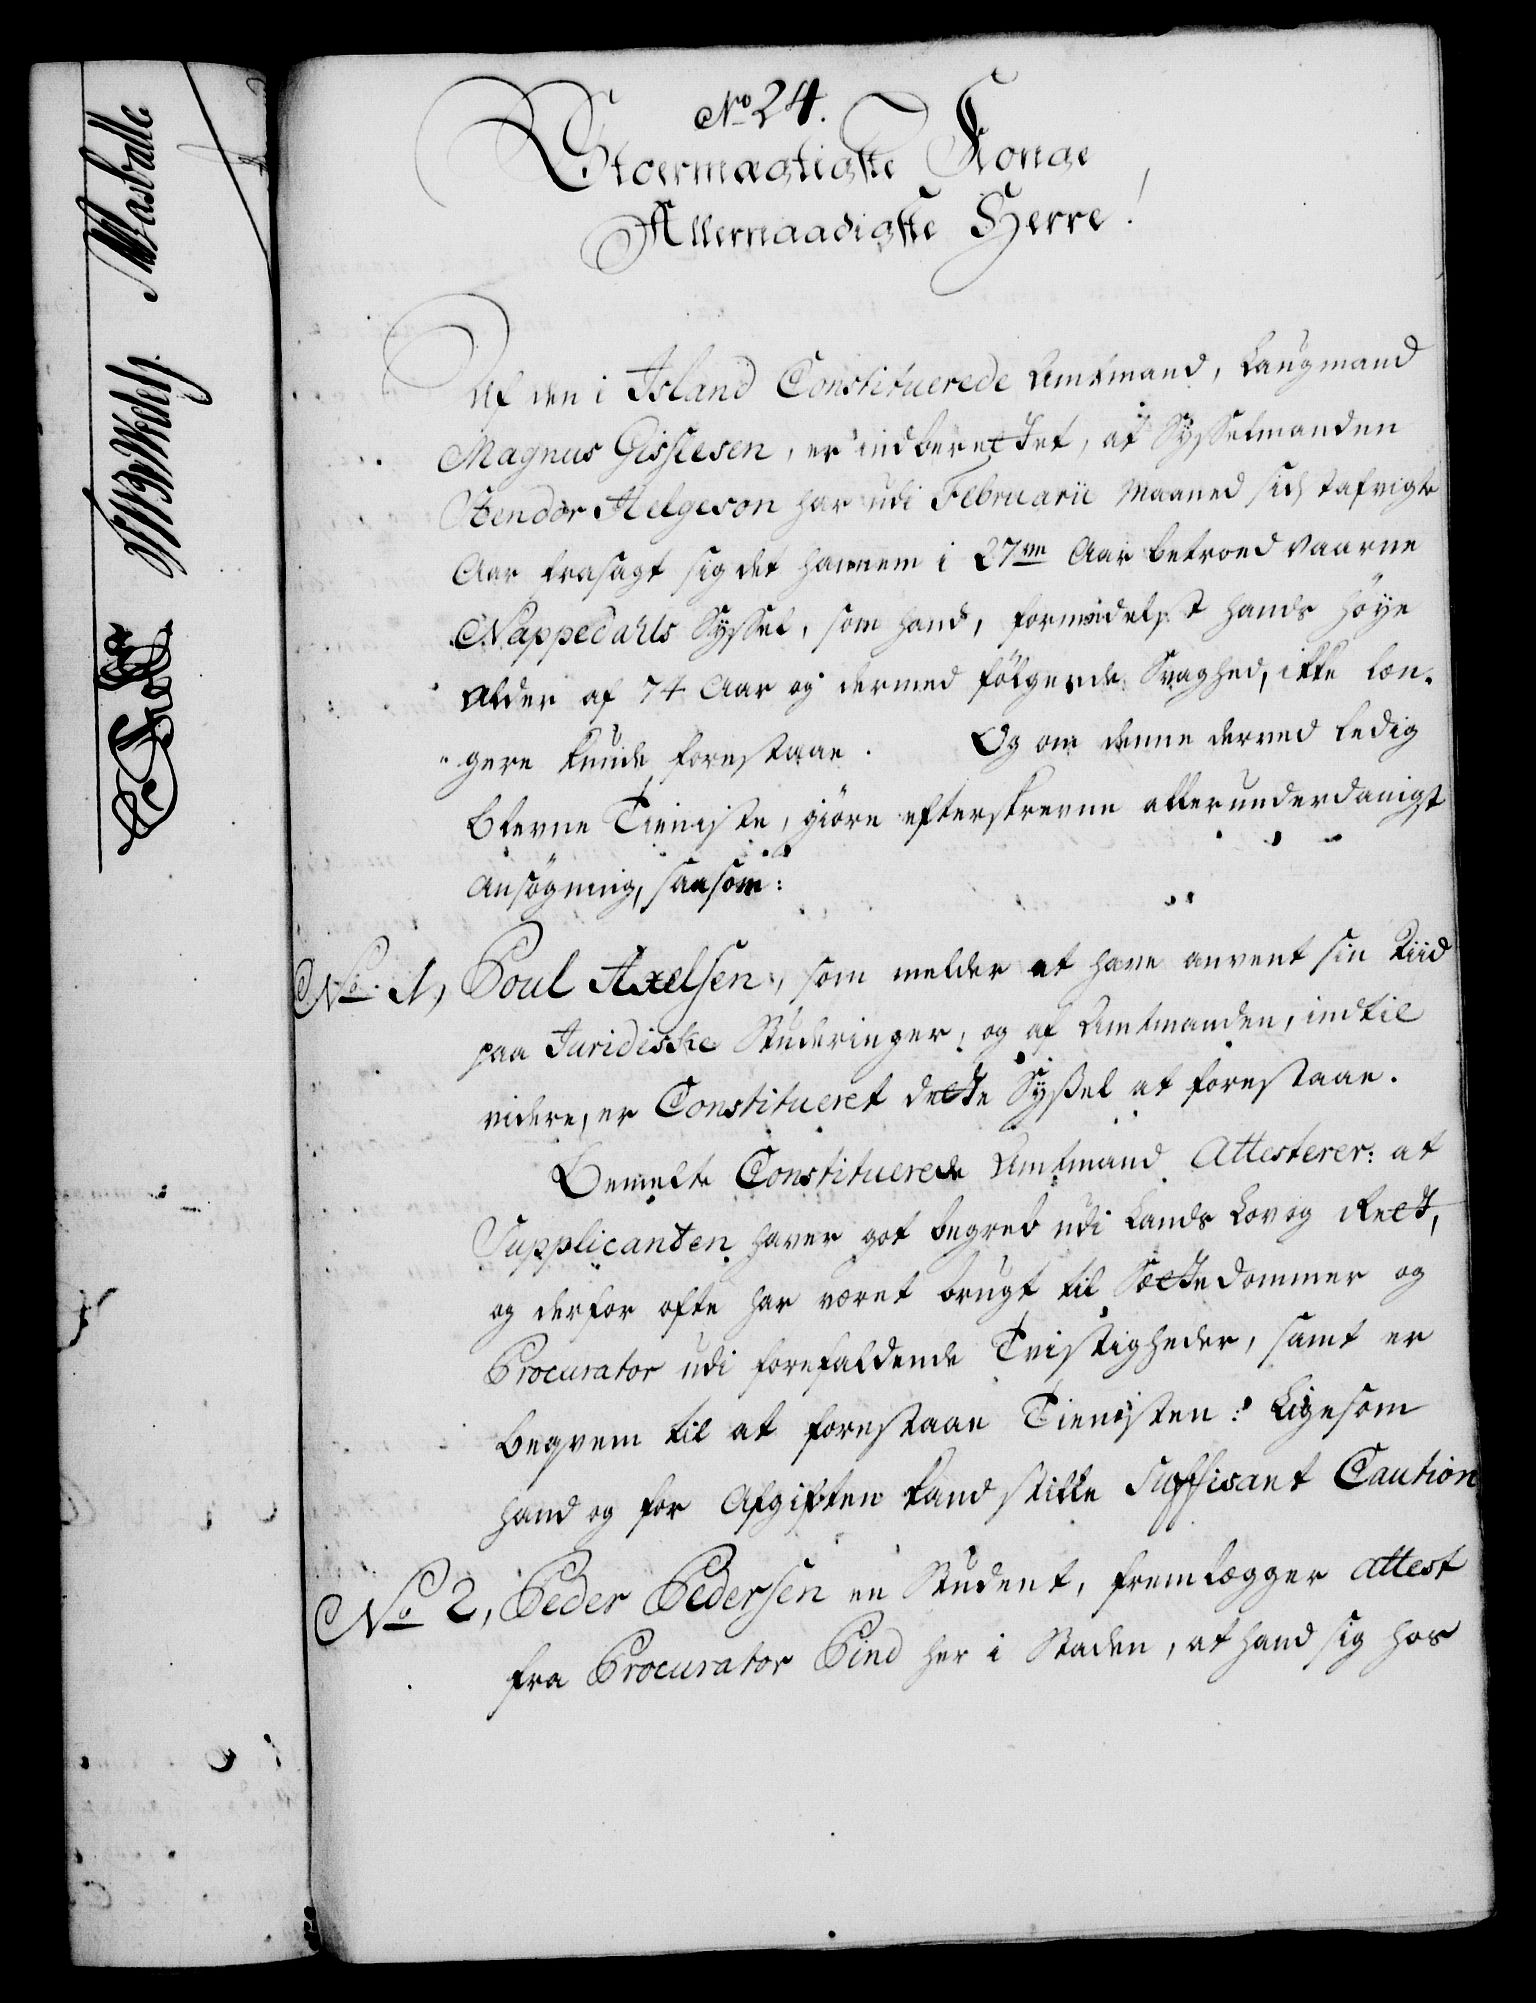 No 24.
Stoermægtigste Konge,
Allernaadigste Herre!
Af den i Island Constituerede Amtmand, Laugmand
Magnus Gislesen, er indberettet, at Sysselmanden
Pendor Helgeson har udi Februarii Maaned sidstafvigte
Aar frasagt sig det hannem i 27ve Aar betroed vaarne
Nappedahls Syssel, som hand, formedelst hands høye
Alder af 74 Aar og dermed følgende Svaghed, ikke læn-
gere kunde forestaae. Og om denne derved ledig
blevne Tieniste, giøre efterskrevne allerunderdanigst
Ansøgning, saasom:
No 1, Poul Axelsen, som melder at have anvent sin Tiid
paa Juridiske Studeringer, og af Amtmanden, indtil
videre, er Constitueret dette Syssel at forestaae.
Bemelte Constituerede Amtmand Attesterer: at
Supplicanten haver got begreb udi Lands Lov og Rett,
og derfor ofte har været brugt til Sættedommer og
Procurator udi forefaldende Tvistigheder, samt er
beqvem til at forestaae Tienisten: Ligesom
hand og for Afgiften kand stille Suffisant Caution
No 2, Peder Pedersen en Student, fremlægger Attest
fra Procurator Pind her i Staden, at hand sig hos